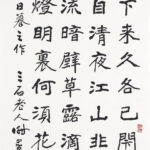 下来久各已閉
自清夜江山非
流暗壁草露滴
燈明裏何須花
日暮之作 三石老人時